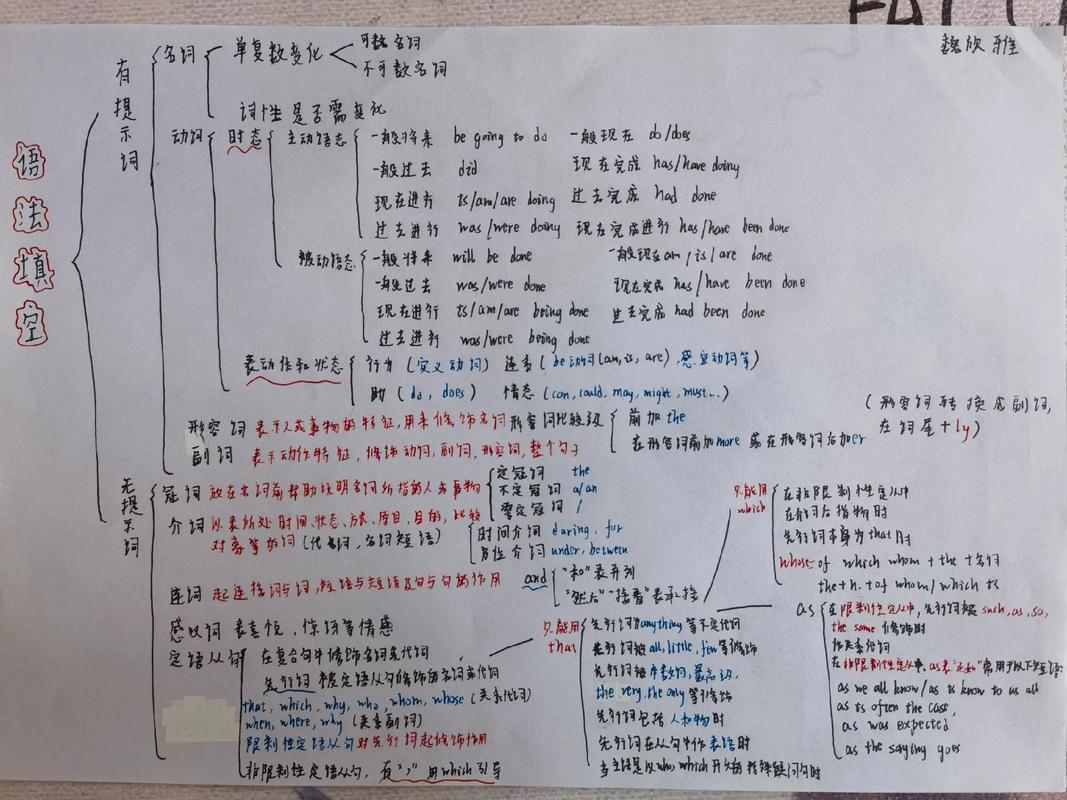 魏欣雅
语法填空
有提示词
名词
单复数变化
可数名词
不可数名词
词性是否需变化
动词
时态
主动语态
一般将来 be going to do 一般现在 do/does
一般过去 did 现在完成 has/have doing
现在进行 is/am/are doing 过去完成 had done
过去进行 was/were doing 现在完成进行 has/have been done
被动语态
一般将来 will be done 一般现在 am/is/are done
一般过去 was/were done 现在完成 has/have been done
现在进行 is/am/are being done 过去完成 had been done
过去进行 was/were being done
表动作和状态
行为(实义动词) 连系(be动词(am,is,are),感官动词等)
助(do,does) 情态(can,could,may,might,must...)
形容词 表示人或事物的特征,用来修饰名词 形容词比较级
前加the
在形容词前加more 或在形容词后加er
(形容词转换成副词,
在词尾+ly)
副词 表示动作特征,修饰动词,副词,形容词,整个句子
无提示词
冠词 放在名词前帮助说明名词所指的人或事物
定冠词 the
不定冠词 a/an
零冠词 /
介词 以表所处时间、状态、方式、原因、目的、比较
对象等的词(代名词,名词短语)
时间介词 during, for
方位介词 under, between
连词 起连接词与词,短语与短语及句与句的作用
and
"和"表并列
"然后""接着"表承接
感叹词 表喜悦,惊讶等情感
定语从句
在复合句中修饰名词或代词
先行词 被定语从句修饰的名词或代词
that, which, why, who, whom, whose (关系代词)
when, where, why (关系副词)
限制性定语从句对先行词起修饰作用
非限制性定语从句,有","用which引导
只能用
that
先行词为anything等不定代词
先行词被all, little, few等修饰
先行词被序数词,最高级,
the very, the only等修饰
先行词包括人和物时
先行词在从句中作表语时
当主语是以who, which开头的特殊疑问句时
只能用
which
在非限制性定从中
在介词后指物时
先行词本身为that时
whose of which whom + the + 名词
the + n. + of whom/which
as
在限制性定从中,先行词被such, as, so,
the same修饰时
在非限制性定从中,as表"正如"常用于以下
as we all know/as is know to us all
as is often the case,
as was expected
as the saying goes